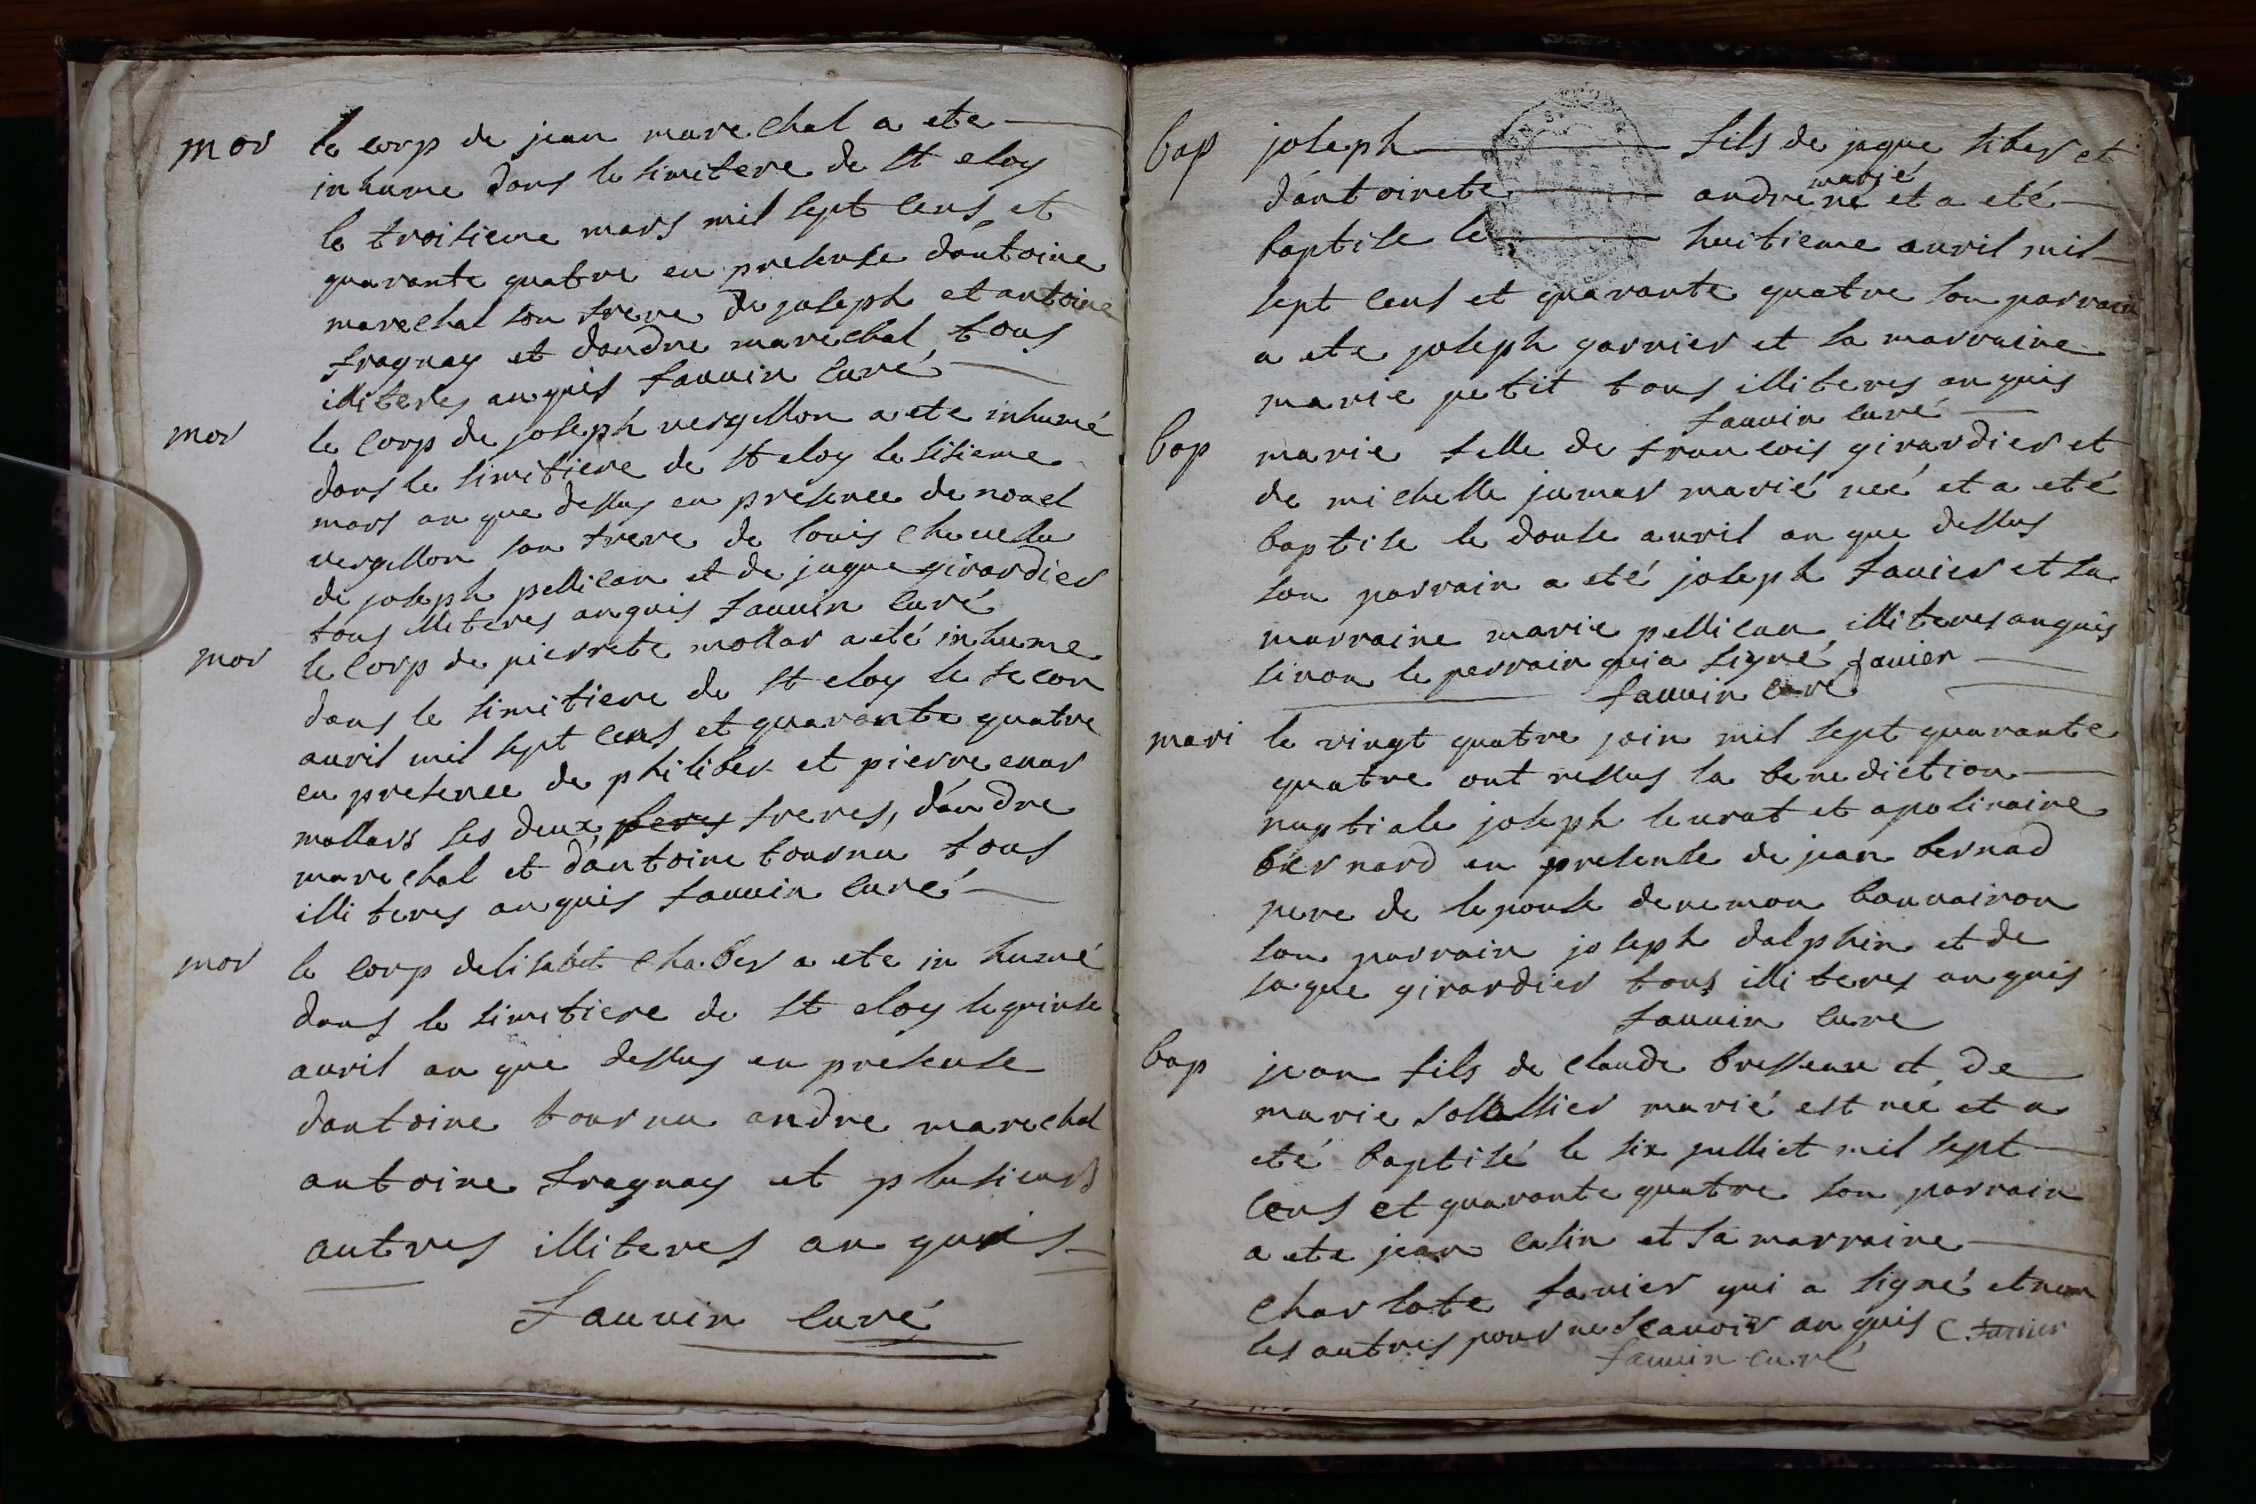 mor le corp de jean marechal a ete
inhume dans le simetere de st eloy
le troisieme mars mil sept cens et
quarante quatre en presense d'antoine
marechal son frere de joseph et antoine
fragnay et dandre marechal tous
illiteres anquis fauuin curé
mor le corp de joseph vergillon a ete inhumé
dans le simitiere de st eloy le sisieme
mars an que dessus en presence de nouel
vergillon son frere de louis cheuelu
de joseph pellican et de jaque girardier
tous illiteres anquis fauuin curé
mor le corp de pierrete mollar a eté inhume
dans le simitiere de st eloy le secon
auril mil sept cens et quarante quatre
en presence de philiber et pierre enar
mollars ses deux peres freres, d'andre
marechal et d'antoine tournu tous
illiteres anquis fauuin curé
mor le corp delisabet chaber a ete in humé
dans le simitiere de st eloy le quinse
auril an que dessus en presense
dantoine tournu andre marechal
antoine fragnay et plusieurs
autres illiteres an quis
fauuin curé
bap joseph fils de jaque siber et
marié
d'antoinete andre né et a eté
baptise le huitieme auril mil
sept cens et quarante quatre son parrain
a ete joseph garnier et sa marraine
marie petit tous illiteres anquis
fauuin curé
bap marie fille de francois girardier et
de michelle jumar marié neé et a eté
baptise le douse auril an que dessus
son parrain a eté joseph fauier et sa
marraine marie pellican illiteres anquis
sinon le perrain qui a signé fauier
fauuin curé
mari le vingt quatre join mil sept quarante
quatre ont ressus la benediction
nuptiale joseph leurat et apolinaire
bernard en presense de jean bernad
pere de lepouse denemon bonnairon
son parrain joseph dalphin et de
jaque girardier tous illiteres anquis
fauuin cure
bap jean fils de claude bresseux et de
marie sollassier marié est neé et a
eté baptisé le six julliet mil sept
cens et quarante quatre son parrain
a ete jean casin et sa marraine
charlote fauier qui a signé et non
les autres pour ne scauoir anquis C. fauier
fauuin curé